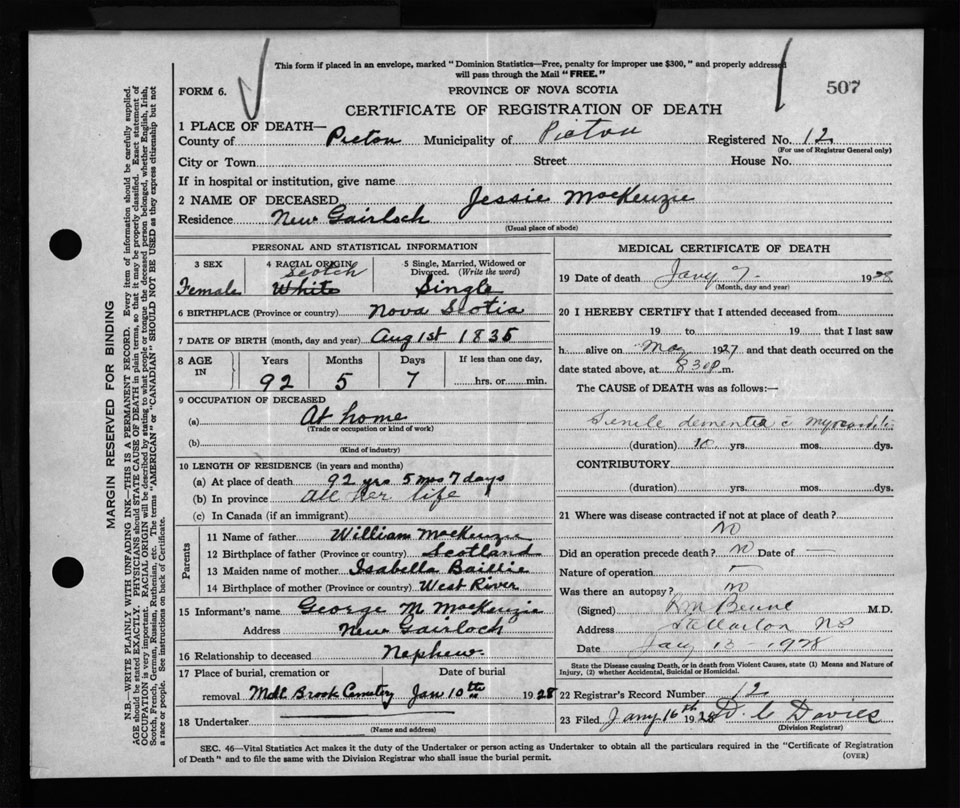 This form if placed in an envelope, marked "Dominion Statistics—Free, penalty for improper use $300," and properly addressed
will pass through the Mail "FREE."
FORM 6.
PROVINCE OF NOVA SCOTIA
507
CERTIFICATE OF REGISTRATION OF DEATH
1 PLACE OF DEATH—
County of Pictou Municipality of Pictou Registered No. 12
(For use of Registrar General only)
City or Town Street House No.
If in hospital or institution, give name
2 NAME OF DECEASED Jessie MacKenzie
Residence New Gairloch
(Usual place of abode)
PERSONAL AND STATISTICAL INFORMATION
3 SEX 4 RACIAL ORIGIN 5 Single, Married, Widowed or
Divorced. (Write the word)
Scotch
Female White Single
6 BIRTHPLACE (Province or country) Nova Scotia
7 DATE OF BIRTH (month, day and year) Aug 1st 1835
8 AGE IN Years Months Days If less than one day,
92 5 7 hrs. or min.
9 OCCUPATION OF DECEASED
(a) At home
(Trade or occupation or kind of work)
(b)
(Kind of industry)
10 LENGTH OF RESIDENCE (in years and months)
(a) At place of death 92 yrs 5 mos 7 days
(b) In province All her life
(c) In Canada (if an immigrant)
Parents
11 Name of father William MacKenzie
12 Birthplace of father (Province or country) Scotland
13 Maiden name of mother Isabella Baillie
14 Birthplace of mother (Province or country) West River
15 Informant's name George M MacKenzie
Address New Gairloch
16 Relationship to deceased Nephew
17 Place of burial, cremation or Date of burial
removal Brook Cemetery Jan 10th 1928
18 Undertaker
(Name and address)
MEDICAL CERTIFICATE OF DEATH
19 Date of death Jany 7 1928
(Month, day and year)
20 I HEREBY CERTIFY that I attended deceased from
19 to 19 that I last saw
h alive on May 1927 and that death occurred on the
date stated above, at 8 30 P m.
The CAUSE of DEATH was as follows:—
Senile dementia c̄
(duration) 10 yrs. mos. dys.
CONTRIBUTORY
(duration) yrs. mos. dys.
21 Where was disease contracted if not at place of death?
No
Did an operation precede death? No Date of —
Nature of operation —
Was there an autopsy? no
(Signed) M.D.
Address Stellarton NS
Date Jany 13 1928
State the Disease causing Death, or in death from Violent Causes, state (1) Means and Nature of
Injury, (2) whether Accidental, Suicidal or Homicidal.
22 Registrar's Record Number 12
23 Filed Jany 16th 1928 D. C Davies
(Division Registrar)
SEC. 46—Vital Statistics Act makes it the duty of the Undertaker or person acting as Undertaker to obtain all the particulars required in the "Certificate of Registration
of Death" and to file the same with the Division Registrar who shall issue the burial permit. (OVER)
MARGIN RESERVED FOR BINDING
N.B.—WRITE PLAINLY WITH UNFADING INK—THIS IS A PERMANENT RECORD. Every item of information should be carefully supplied.
AGE should be stated EXACTLY. PHYSICIANS should STATE CAUSE OF DEATH in plain terms, so that it may be properly classified. Exact statement of
OCCUPATION is very important. RACIAL ORIGIN will be described by stating to what people or tongue the deceased person belonged, whether English, Irish,
Scotch, French, German, Russian, Ruthenian, etc. The terms "AMERICAN" or "CANADIAN" SHOULD NOT BE USED as they express citizenship but not
a race or people. See instructions on back of Certificate.